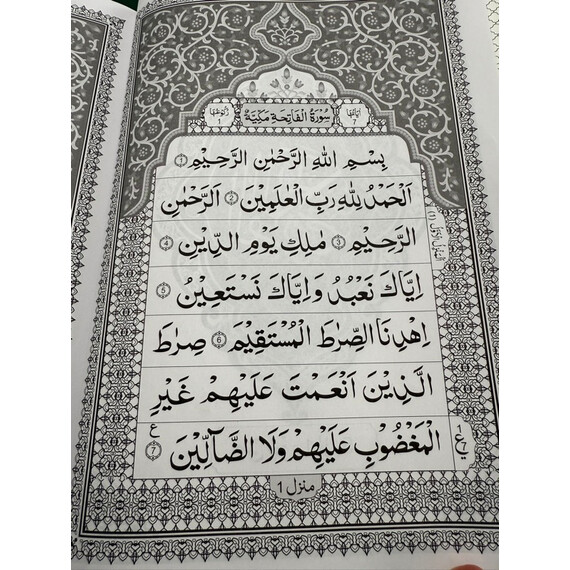 اٰيَاتُهَا 7
سُوْرَةُ الْفَاتِحَةِ مَكِّيَّةٌ
رُكُوْعُهَا 1
بِسْمِ اللهِ الرَّحْمٰنِ الرَّحِيْمِ ﴿1﴾
اَلْحَمْدُ لِلّٰهِ رَبِّ الْعٰلَمِيْنَ ﴿2﴾ اَلرَّحْمٰنِ
الرَّحِيْمِ ﴿3﴾ مٰلِكِ يَوْمِ الدِّيْنِ ﴿4﴾
اِيَّاكَ نَعْبُدُ وَاِيَّاكَ نَسْتَعِيْنُ ﴿5﴾
اِهْدِنَا الصِّرَاطَ الْمُسْتَقِيْمَ ﴿6﴾ صِرَاطَ
الَّذِيْنَ اَنْعَمْتَ عَلَيْهِمْ غَيْرِ
الْمَغْضُوْبِ عَلَيْهِمْ وَلَا الضَّآلِّيْنَ ﴿7﴾ ع
1 ع 7
منزل 1